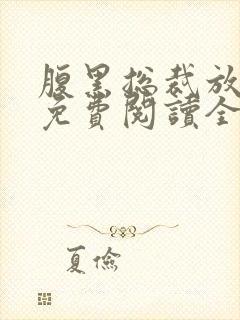 腹黑总裁放
免費閱讀全
夏儉